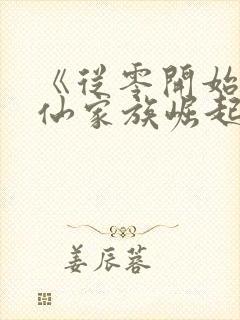 《從零開始
仙家族崛起
姜辰蓉